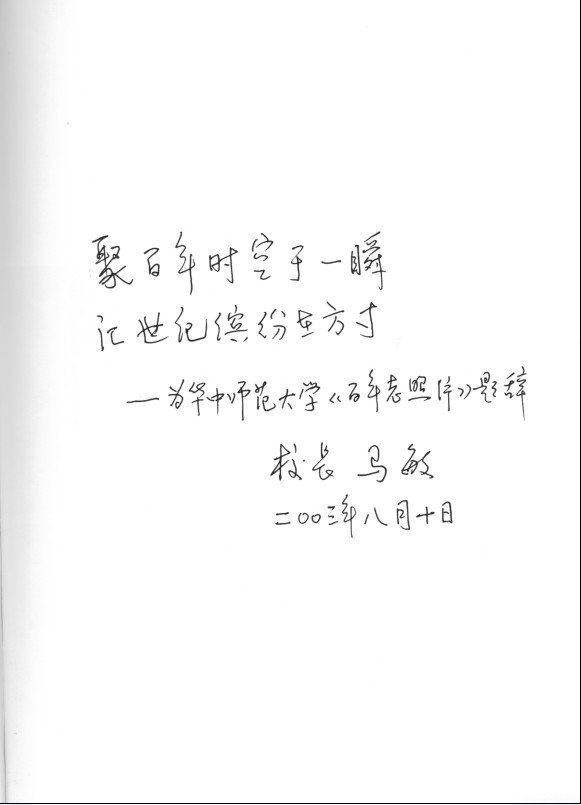 聚百年时空于一瞬
汇世纪缤纷在方寸
—为华中师范大学《百年老照片》题辞
校长 马敏
二〇〇三年八月十日